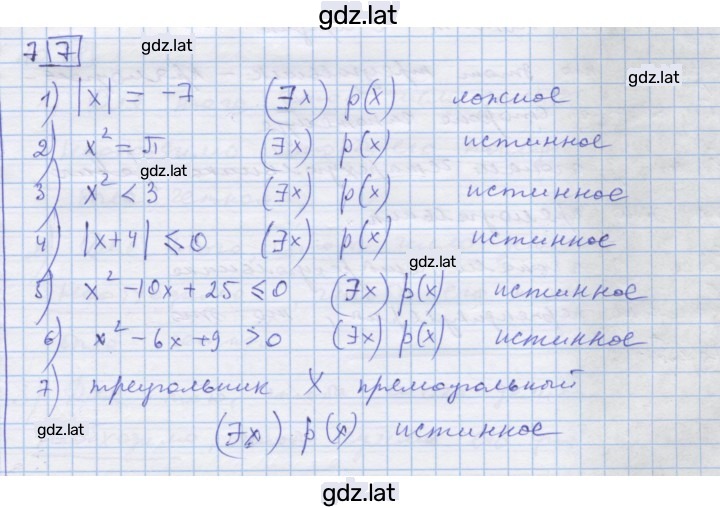 gdz.lat
7 7 gdz.lat
gdz.lat
1) |x| = -7 (∃x) p(x) ложное
2) x² = π (∃x) p(x) истинное
gdz.lat
3) x² < 3 (∃x) p(x) истинное
4) |x+4| ≤ 0 (∃x) p(x) истинное
gdz.lat
5) x² - 10x + 25 ≤ 0 (∃x) p(x) истинное
6) x² - 6x + 9 > 0 (∃x) p(x) истинное
7) треугольник X прямоугольный
gdz.lat (∃x) p(x) истинное
gdz.lat